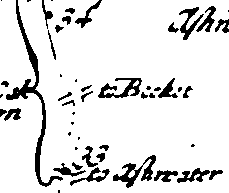 34 Ashn
to Becket
33
to Ashwater